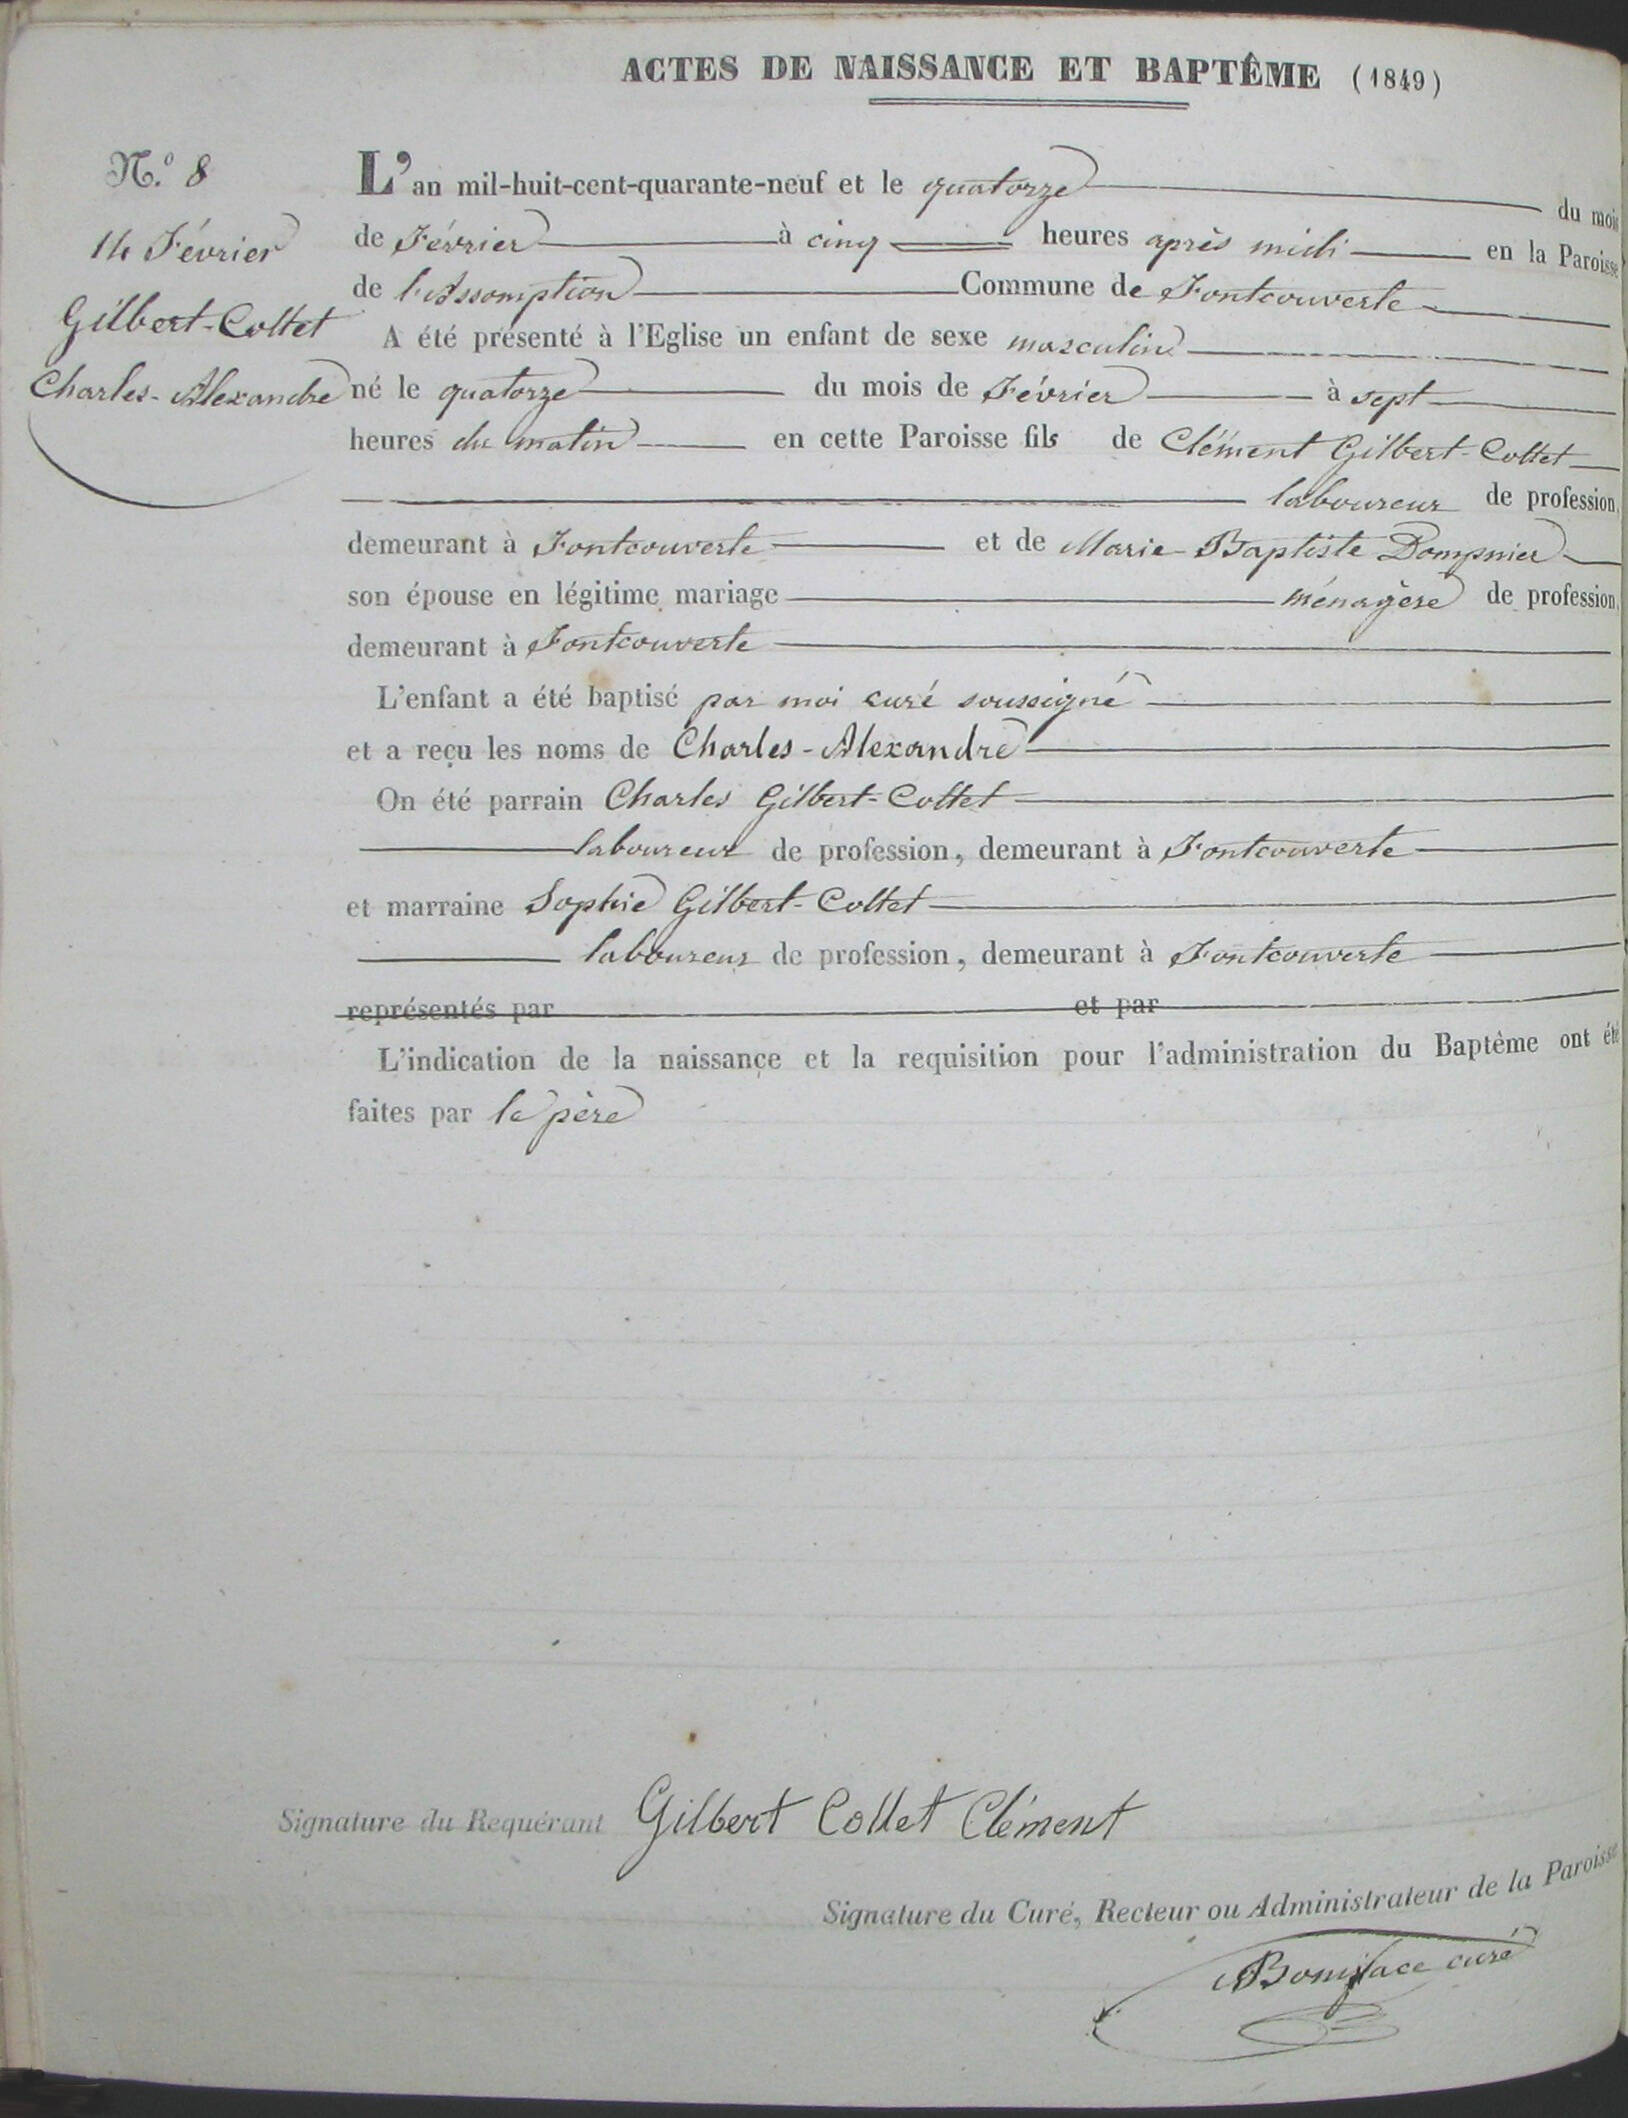 ACTES DE NAISSANCE ET BAPTÊME (1849)
N.º 8
14 Février
Gilbert-Collet
Charles-Alexandre
L'an mil-huit-cent-quarante-neuf et le quatorze du mois
de Février à cinq heures après midi en la Paroisse
de l'Assomption Commune de Fontcouverte
A été présenté à l'Eglise un enfant de sexe masculin
né le quatorze du mois de Février à sept
heures du matin en cette Paroisse fils de Clément Gilbert-Collet
laboureur de profession,
demeurant à Fontcouverte et de Marie-Baptiste Dompnier
son épouse en légitime mariage ménagère de profession,
demeurant à Fontcouverte
L'enfant a été baptisé par moi curé soussigné
et a reçu les noms de Charles-Alexandre
On été parrain Charles Gilbert-Collet
laboureur de profession, demeurant à Fontcouverte
et marraine Sophie Gilbert-Collet
laboureur de profession, demeurant à Fontcouverte
représentés par et par
L'indication de la naissance et la requisition pour l'administration du Baptême ont été
faites par le père
Signature du Requérant Gilbert Collet Clément
Signature du Curé, Recteur ou Administrateur de la Paroisse
Boniface curé